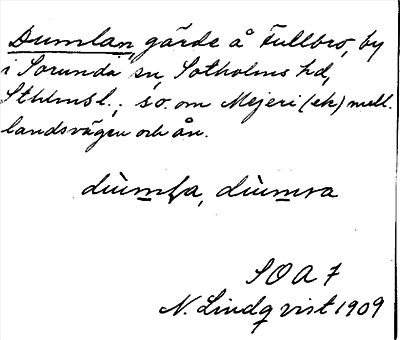 Dumlan, gärde å Fullbro, by
i Sorunda sn, Sotholms hd,
Sthlmsl.; s.o. om Mejeri (ek) mell.
landsvägen och ån.
dùmḷa, dùmra
SOA 7
N. Lindqvist 1909